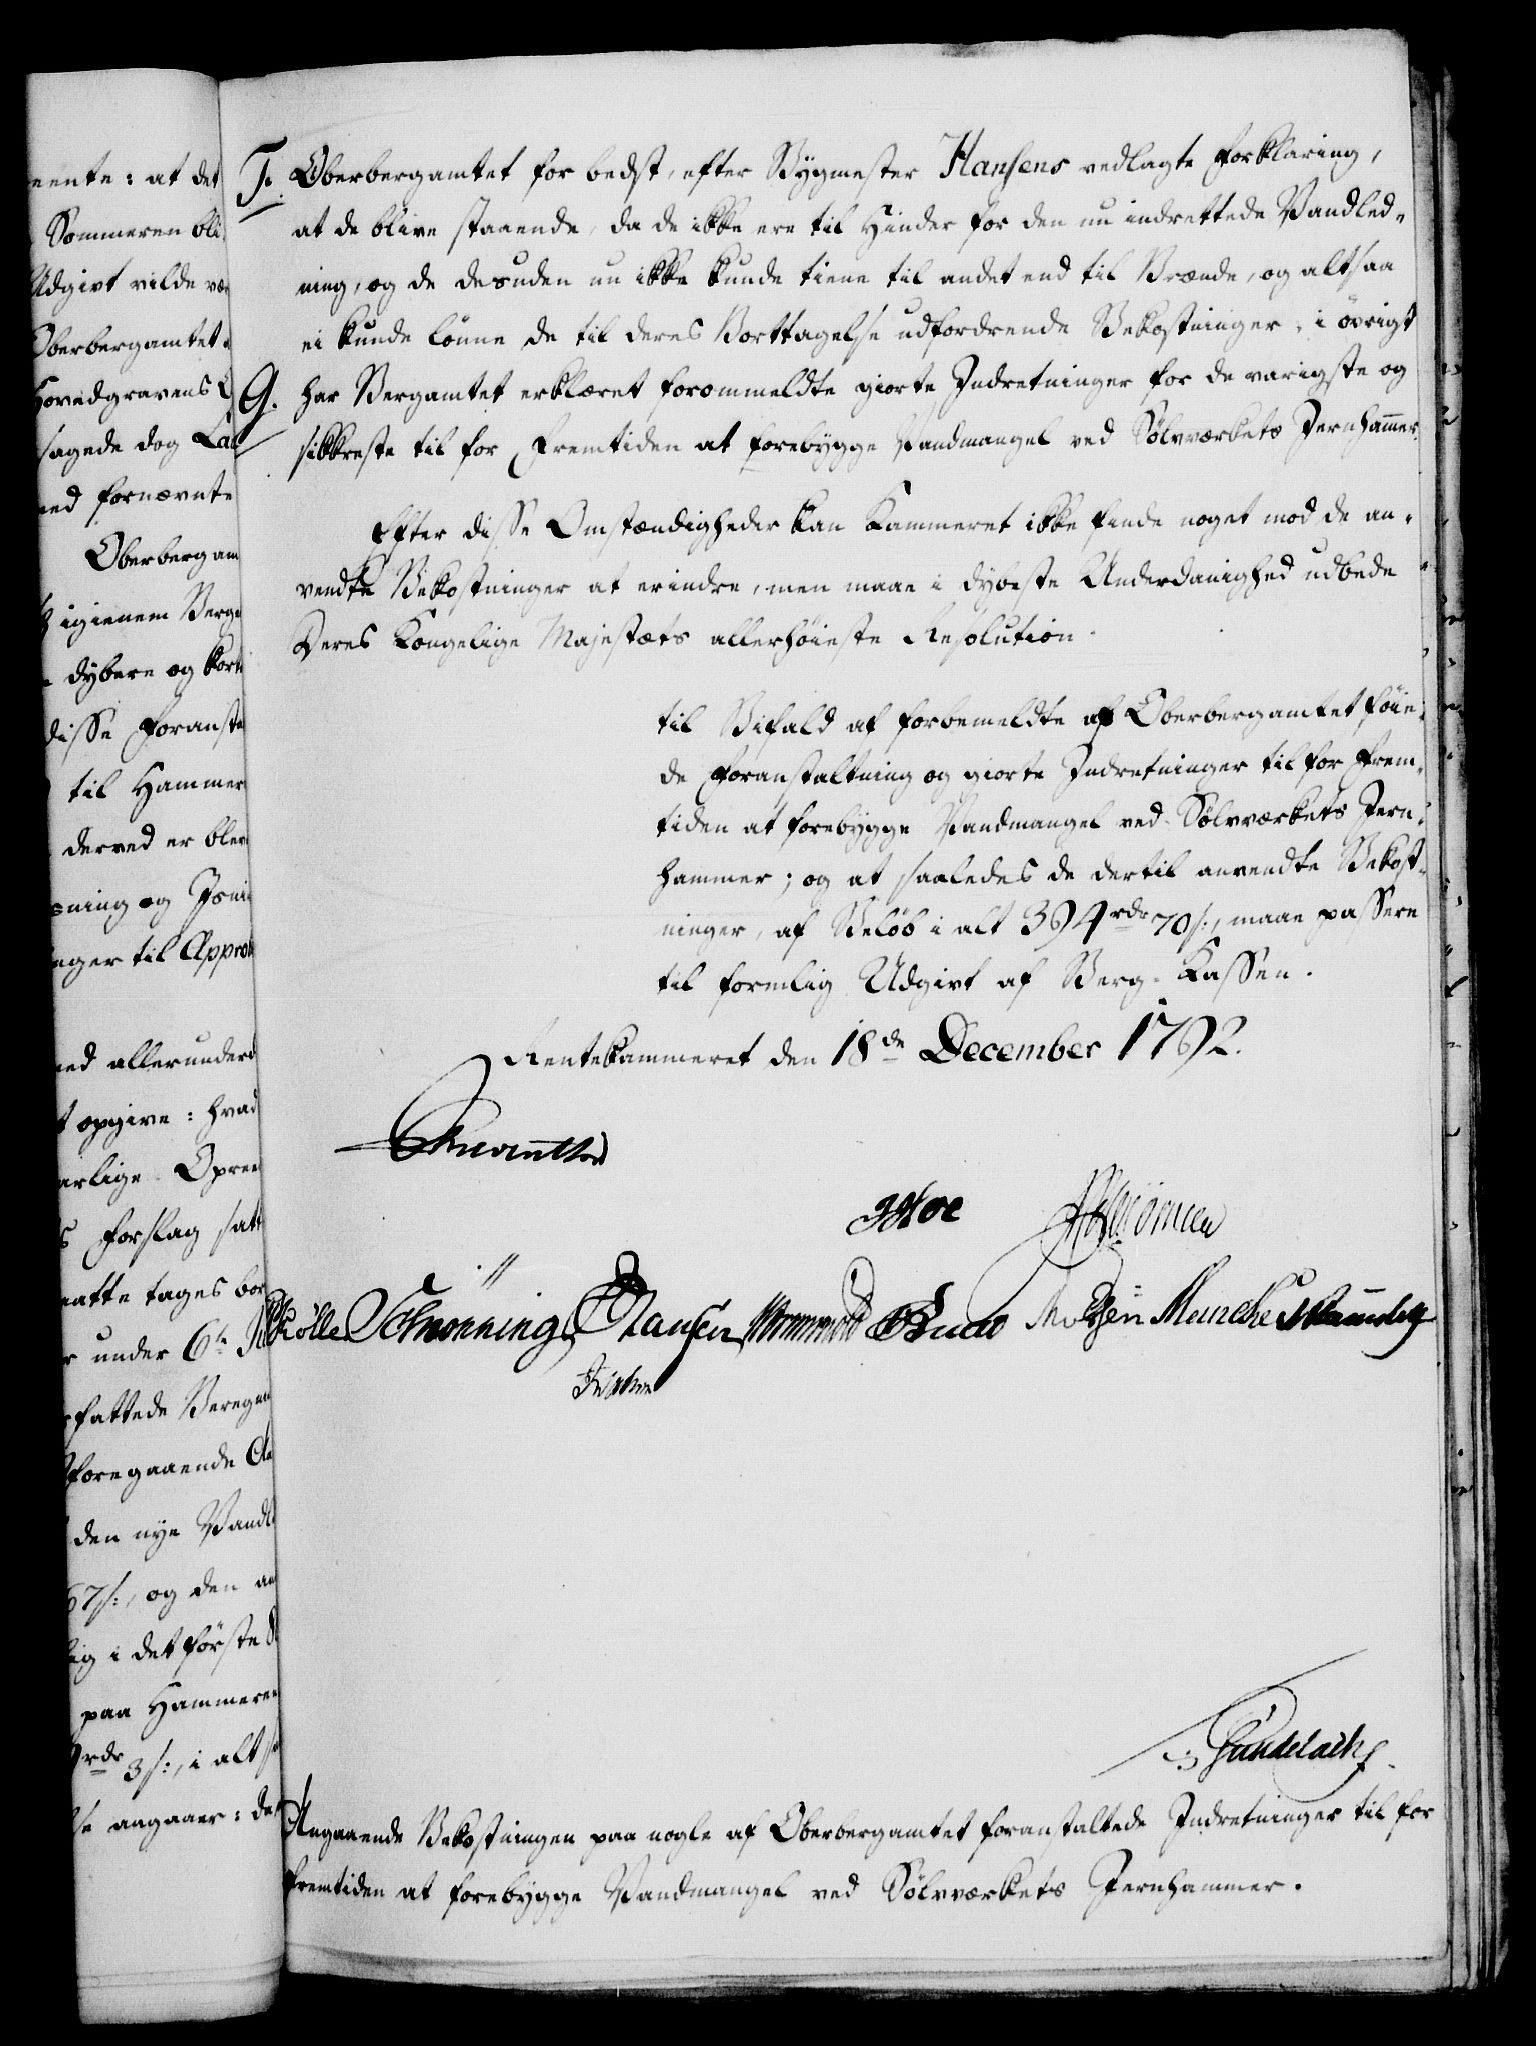 eente: at det
Sommeren bli
Udgivt vilde væ
Oberbergamtet
Hovedgravens
sagede dog
ed fornævnte
Oberbergam
igienem Berg
dybere og kort
disse Foranst
til Hammer
derved er blev
ning og
nger til Approb
ed allerunderd
t opgive: hvad
arlige Opren
s Forslag satt
aatte tages bor
r under 6te
fattede Beregn
foregaaende
den nye Vandl
67 s:, og den an
ig i det første
paa Hammeren
rdr 3 s:, i alt
se angaaer: det
F. Oberbergamtet for bedst, efter Bygmester Hansens vedlagte Forklaring,
at de blive staaende, da de ikke ere til Hinder for den nu indrettede Vandled-
ning, og de desuden nu ikke kunde tiene til andet end til Brænde, og altsaa
ei kunde lønne de til deres Borttagelse udfordrende Bekostninger, i øvrigt
G. har Bergamtet erklæret forommeldte giorte Indretninger for de varigste og
sikkreste til for Fremtiden at forebygge Vandmangel ved Sølvværkets Jernhammer.
Efter disse Omstændigheder kan Kammeret ikke finde noget mod de an-
vendte Bekostninger at erindre, men maae i dybeste Underdanighed udbede
Deres Kongelige Majestæts allerhøieste Resolution
til Bifald af forbemeldte af Oberbergamtet føie-
de Foranstaltning og giorte Indretninger til for Frem-
tiden at forebygge Vandmangel ved Sølvværkets Jern-
hammer; og at saaledes de dertil anvendte Bekost-
ninger, af Beløb i alt 394 rdr 70 s:, maae passere
til formlig Udgivt af Berg-Kassen.
Rentekammeret den 18de December 1792.
Hoe
Kølle Schrønning Hansen Wormwold Knud Meincke
Gundelach
Angaaende Bekostningen paa nogle af Oberbergamtet foranstaltede Indretninger til for
Fremtiden at forebygge Vandmangel ved Sølvværkets Jernhammer.